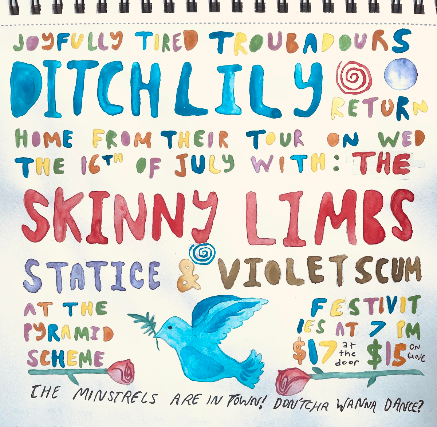 JOYFULLY TIRED TROUBADOURS
DITCHLILY
RETURN
HOME FROM THEIR TOUR ON WED
THE 16TH OF JULY WITH: THE
SKINNY LIMBS
STATICE & VIOLET SCUM
AT THE
PYRAMID
SCHEME
FESTIVIT
IES AT 7 PM
$17 at the door $15 ONLINE
THE MINSTRELS ARE IN TOWN! DON'TCHA WANNA DANCE?